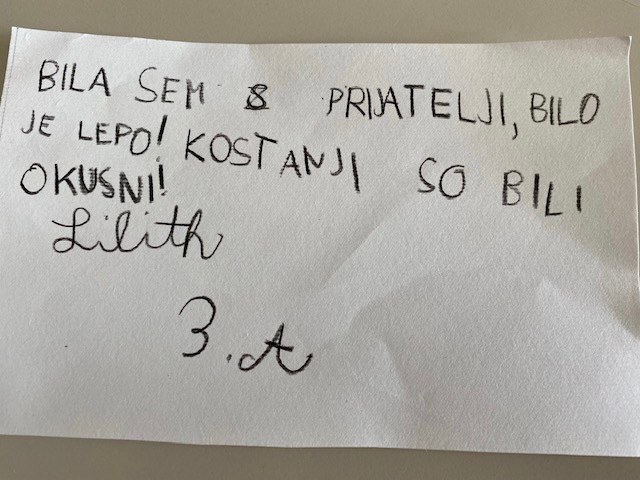 BILA SEM S PRIJATELJI, BILO
JE LEPO! KOSTANJI SO BILI
OKUSNI!
Lilith
3.A